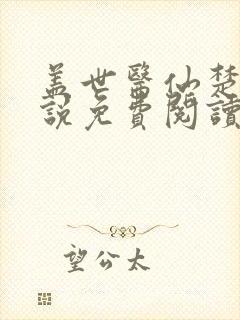 盖世醫仙楚
説免費閱讀
望公太